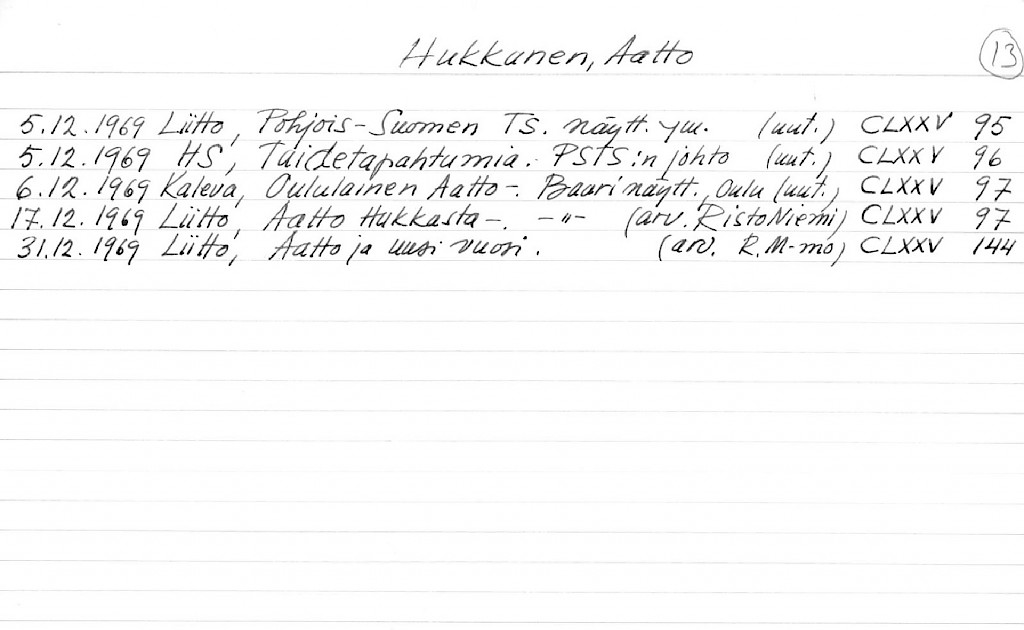 Hukkanen, Aatto
13
5.12.1969 Liitto, Pohjois-Suomen TS. näytt. ym. (uut.) CLXXV 95
5.12.1969 HS, Taidetapahtumia. PSTS:n johto (uut.) CLXXV 96
6.12.1969 Kaleva, Oululainen Aatto-. Baari näytt., Oulu (uut.) CLXXV 97
17.12.1969 Liitto, Aatto Hukkasta-. -"- (arv. Risto Niemi) CLXXV 97
31.12.1969 Liitto, Aatto ja uusi vuosi. (arv. R.M-mo) CLXXV 144